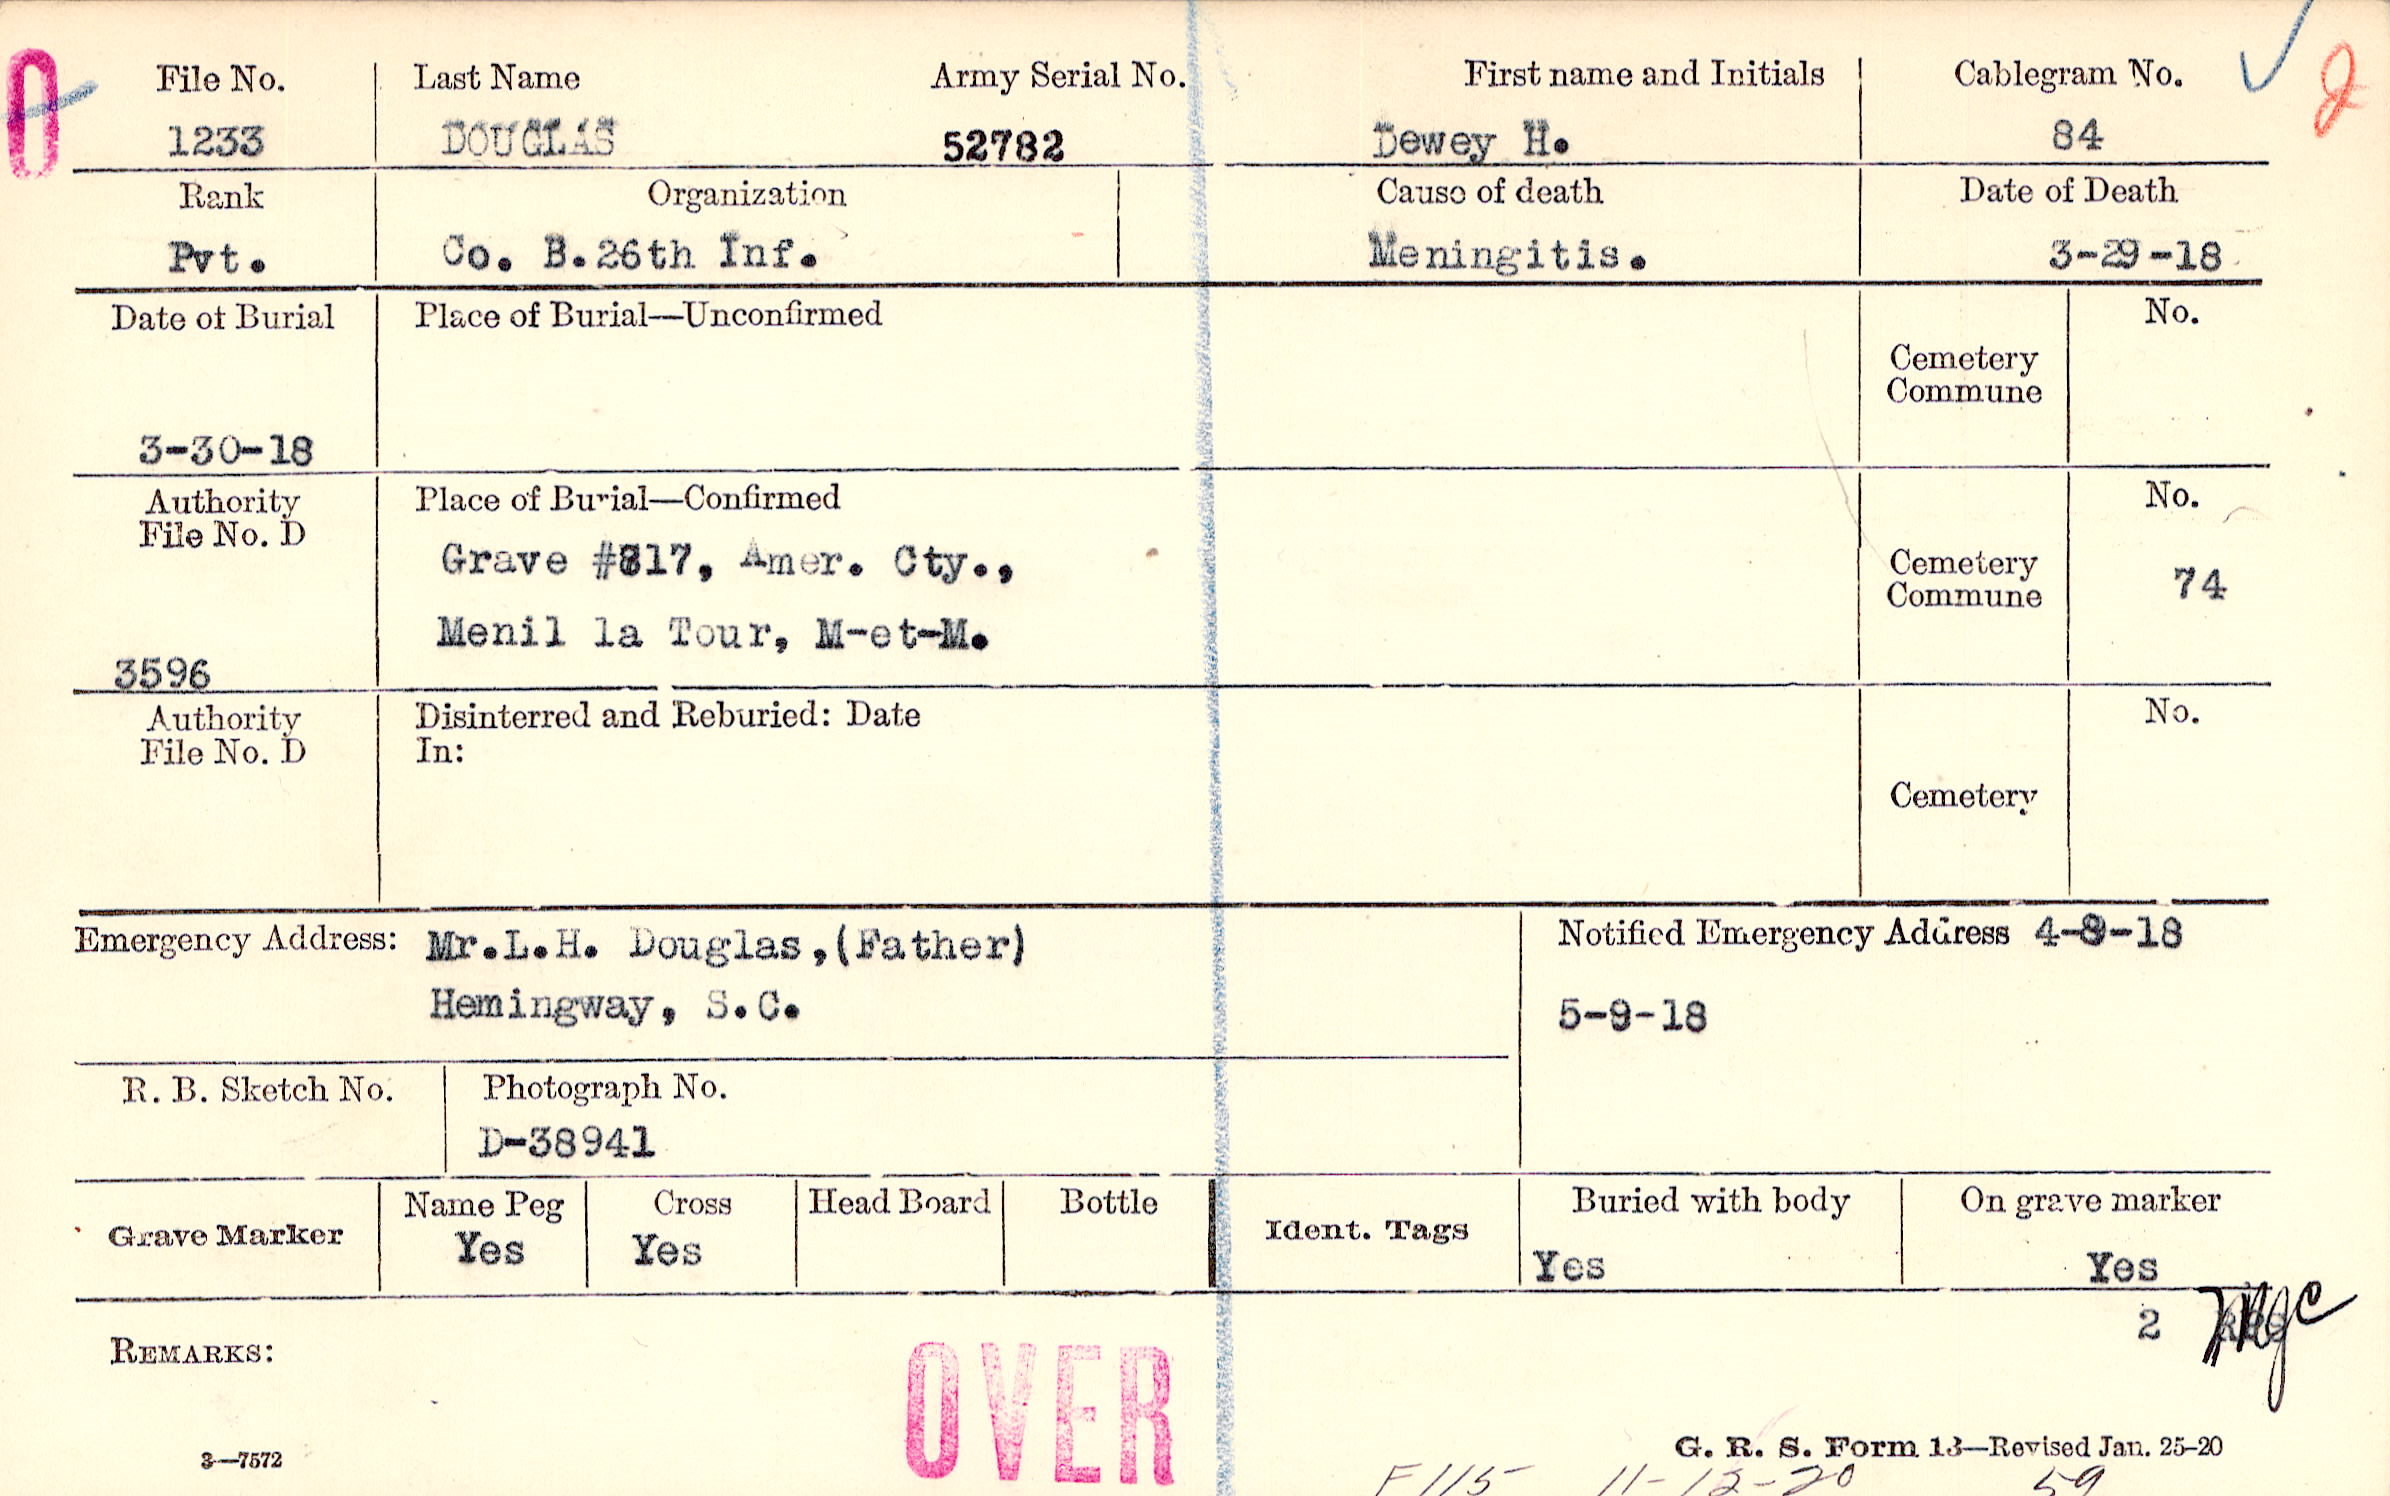 O
File No. Last Name Army Serial No. First name and Initials Cablegram No.
1233 DOUGLAS 52782 Dewey H. 84
Rank Organization Cause of death Date of Death
Pvt. Co. B.26th Inf. Meningitis. 3-29-18
Date of Burial Place of Burial—Unconfirmed No.
Cemetery
Commune
3-30-18
Authority Place of Burial—Confirmed No.
File No. D
Grave #817, Amer. Cty.,
Cemetery
Commune 74
Menil la Tour, M-et-M.
3596
Authority Disinterred and Reburied: Date No.
File No. D In:
Cemetery
Emergency Address: Mr.L.H. Douglas,(Father) Notified Emergency Address 4-8-18
Hemingway, S.C. 5-9-18
R. B. Sketch No. Photograph No.
D-38941
Grave Marker Name Peg Cross Head Board Bottle Ident. Tags Buried with body On grave marker
Yes Yes Yes Yes
2
REMARKS:
OVER
3—7572 G. R. S. Form 13—Revised Jan. 25-20
F115 11-12-20 59